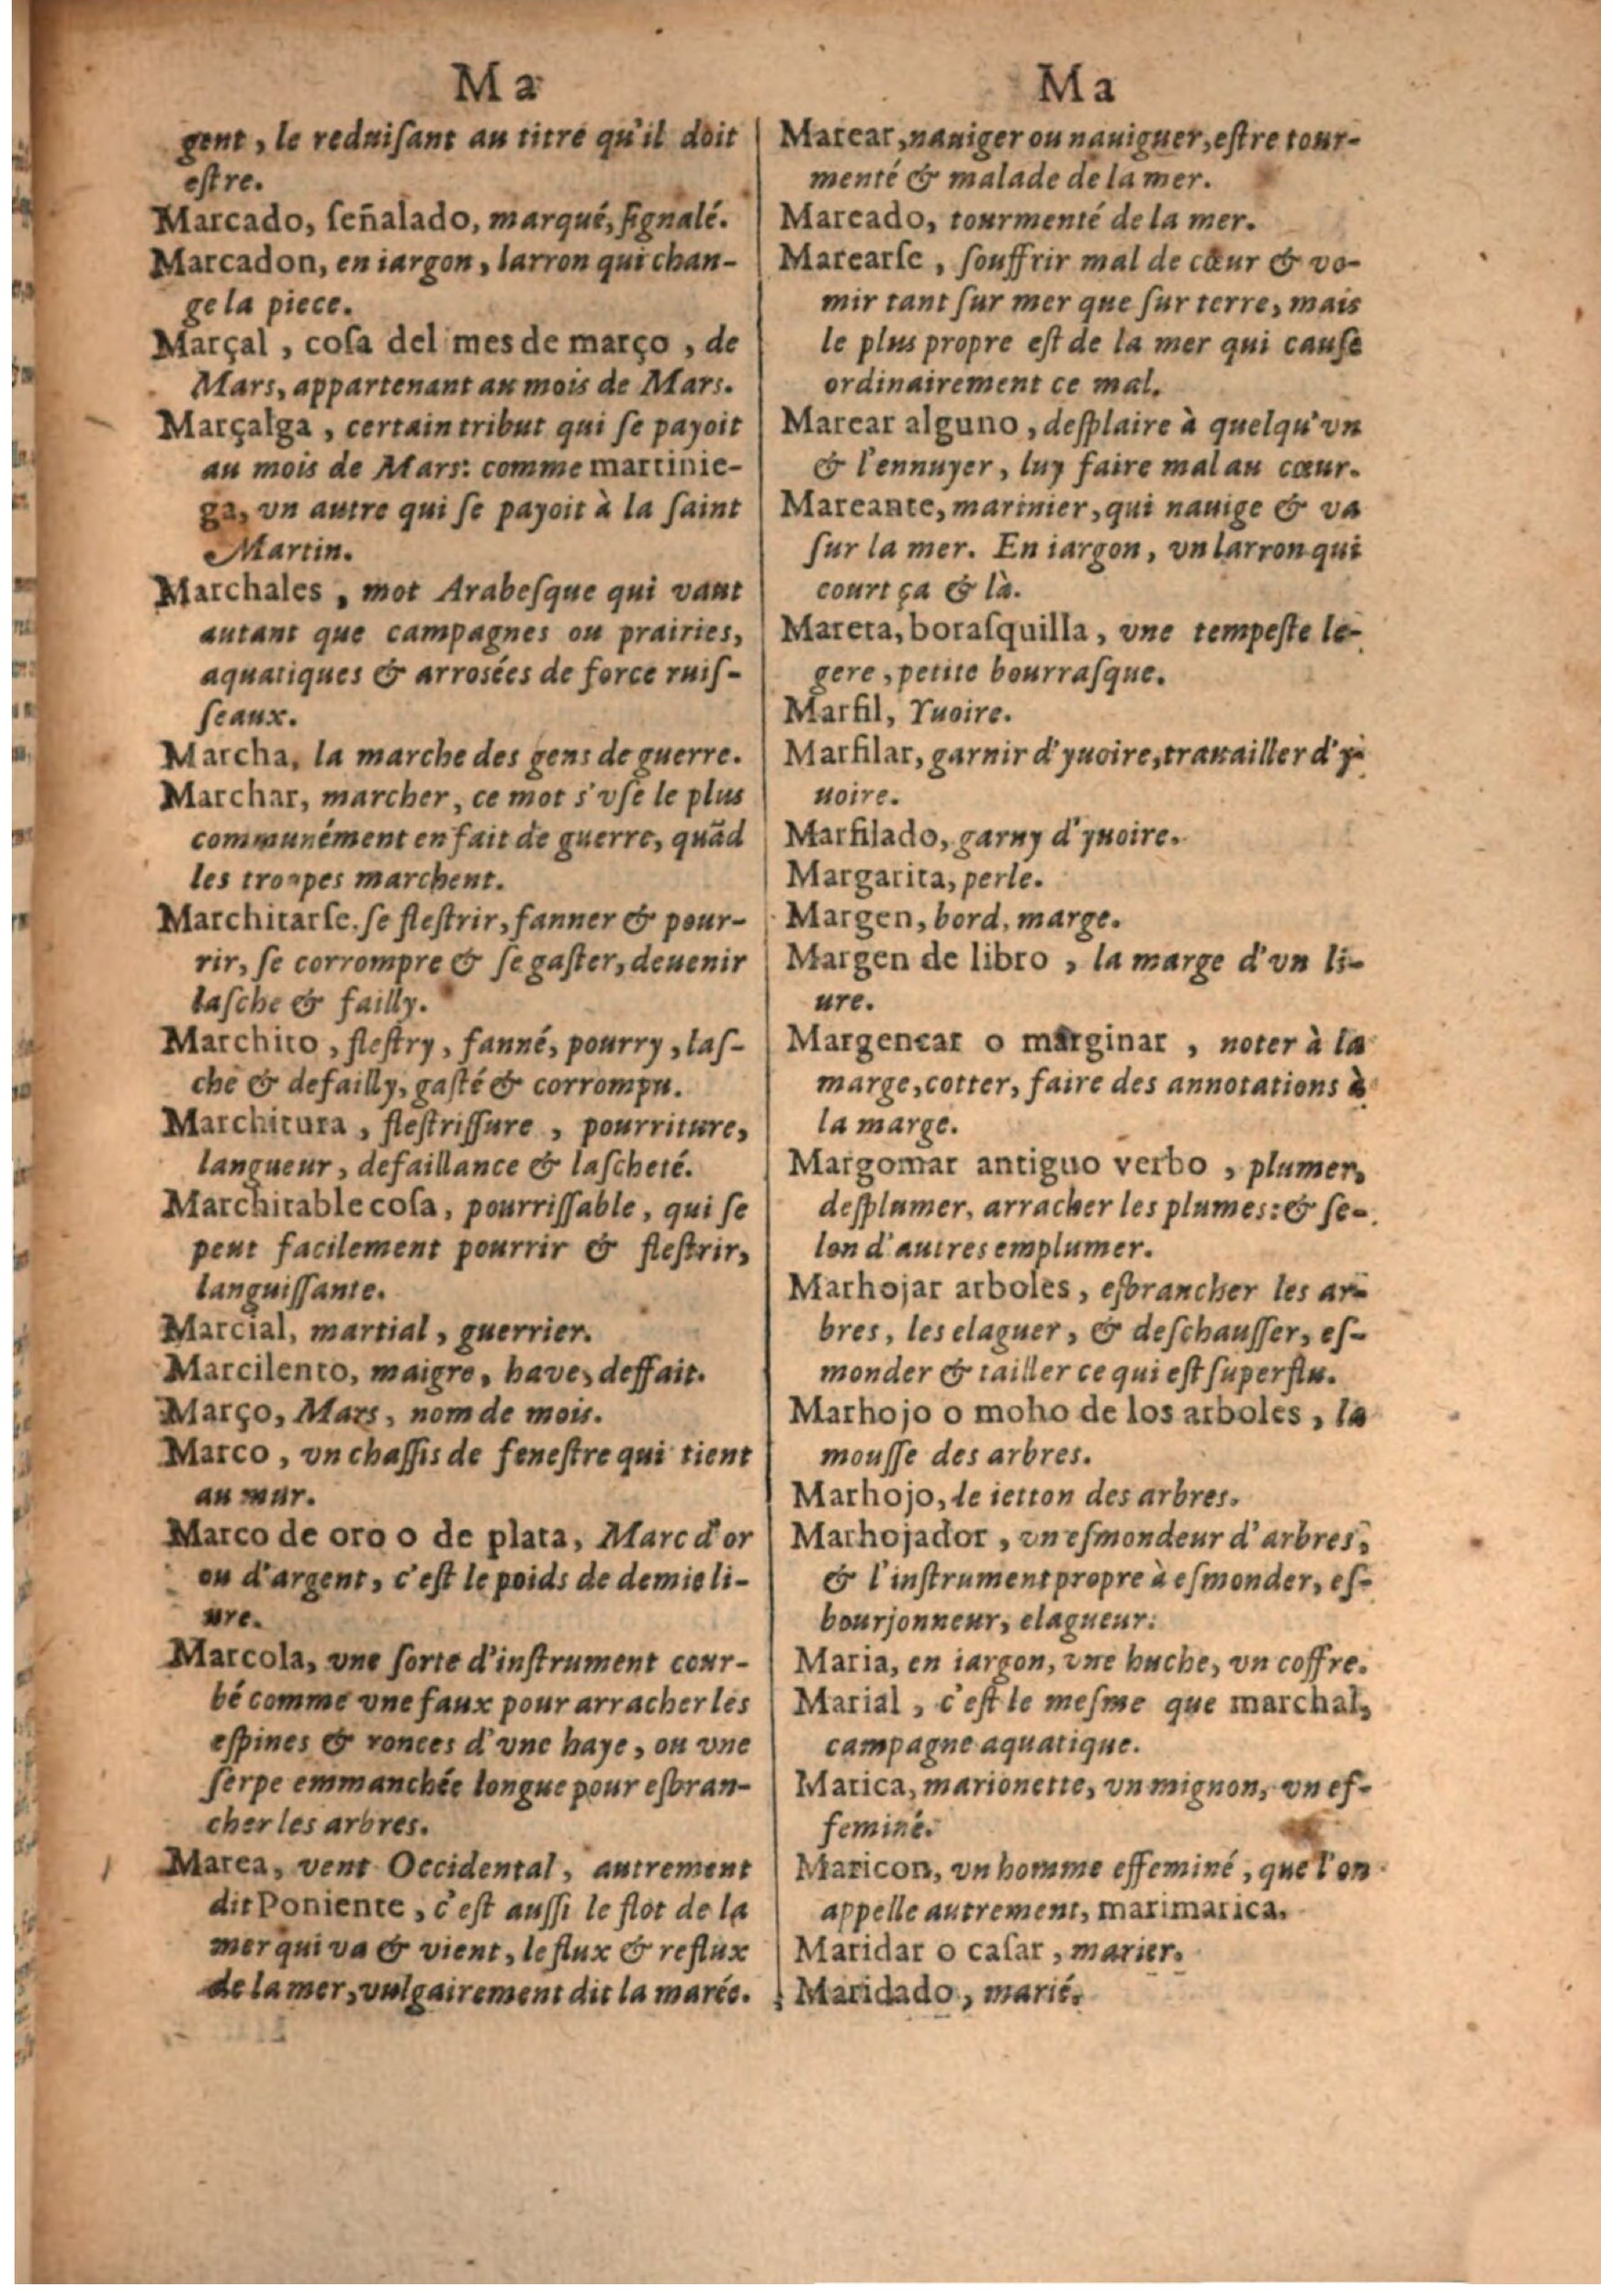 Ma
gent, le reduiſant au titre qu'il doit
eſtre.
Marcado, ſeñalado, marqué, ſignalé.
Marcadon, en iargon, larron qui chan-
ge la piece.
Marçal, coſa del mes de março, de
Mars, appartenant au mois de Mars.
Marçalga, certain tribut qui ſe payoit
au mois de Mars: comme martinie-
ga, vn autre qui ſe payoit à la ſaint
Martin.
Marchales, mot Arabeſque qui vaut
autant que campagnes ou prairies,
aquatiques & arrosées de force ruiſ-
ſeaux.
Marcha, la marche des gens de guerre.
Marchar, marcher, ce mot s'vſe le plus
communément en fait de guerre, quãd
les troupes marchent.
Marchitarſe. ſe fleſtrir, fanner & pour-
rir, ſe corrompre & ſe gaſter, deuenir
laſche & failly.
Marchito, fleſtry, fanné, pourry, laſ-
che & defailly, gaſté & corrompu.
Marchitura, fleſtriſſure, pourriture,
langueur, defaillance & laſcheté.
Marchitable coſa, pourriſſable, qui ſe
peut facilement pourrir & fleſtrir,
languiſſante.
Marcial, martial, guerrier.
Marcilento, maigre, have, deffait.
Março, Mars, nom de mois.
Marco, vn chaſſis de feneſtre qui tient
au mur.
Marco de oro o de plata, Marc d'or
ou d'argent, c'eſt le poids de demie li-
ure.
Marcola, vne ſorte d'inſtrument cour-
bé comme vne faux pour arracher les
eſpines & ronces d'vne haye, ou vne
ſerpe emmanchée longue pour eſbran-
cher les arbres.
Marea, vent Occidental, autrement
dit Poniente, c'eſt auſſi le flot de la
mer qui va & vient, le flux & reflux
de la mer, vulgairement dit la marée.
Ma
Marear, nauiger ou nauiguer, eſtre tour-
menté & malade de la mer.
Mareado, tourmenté de la mer.
Marearſe, ſouffrir mal de cœur & vo-
mir tant ſur mer que ſur terre, mais
le plus propre eſt de la mer qui cauſe
ordinairement ce mal.
Marear alguno, deſplaire à quelqu'vn
& l'ennuyer, luy faire mal au cœur.
Mareante, marinier, qui nauige & va
ſur la mer. En iargon, vn larron qui
court ça & là.
Mareta, boraſquilla, vne tempeſte le-
gere, petite bourraſque.
Marfil, Yuoire.
Marfilar, garnir d'yuoire, trauailler d'y-
uoire.
Marfilado, garny d'yuoire.
Margarita, perle.
Margen, bord, marge.
Margen de libro, la marge d'vn li-
ure.
Margenear o marginar, noter à la
marge, cotter, faire des annotations à
la marge.
Margomar antiguo verbo, plumer,
deſplumer, arracher les plumes: & ſe-
lon d'autres emplumer.
Marhojar arboles, eſbrancher les ar-
bres, les elaguer, & deſchauſſer, eſ-
monder & tailler ce qui eſt ſuperflu.
Marhojo o moho de los arboles, la
mouſſe des arbres.
Marhojo, le ietton des arbres.
Marhojador, vn eſmondeur d'arbres,
& l'inſtrument propre à eſmonder, eſ-
bourjonneur, elagueur.
Maria, en iargon, vne huche, vn coffre.
Marial, c'eſt le meſme que marchal,
campagne aquatique.
Marica, marionette, vn mignon, vn ef-
feminé.
Maricon, vn homme effeminé, que l'on
appelle autrement, marimarica.
Maridar o caſar, marier.
Maridado, marié.